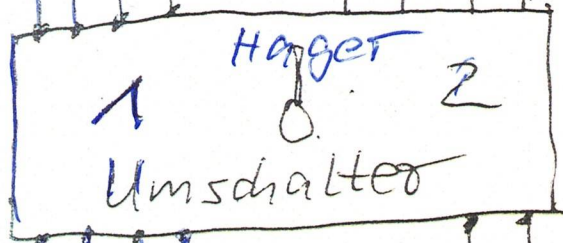 Hager
1 2
Umschalter